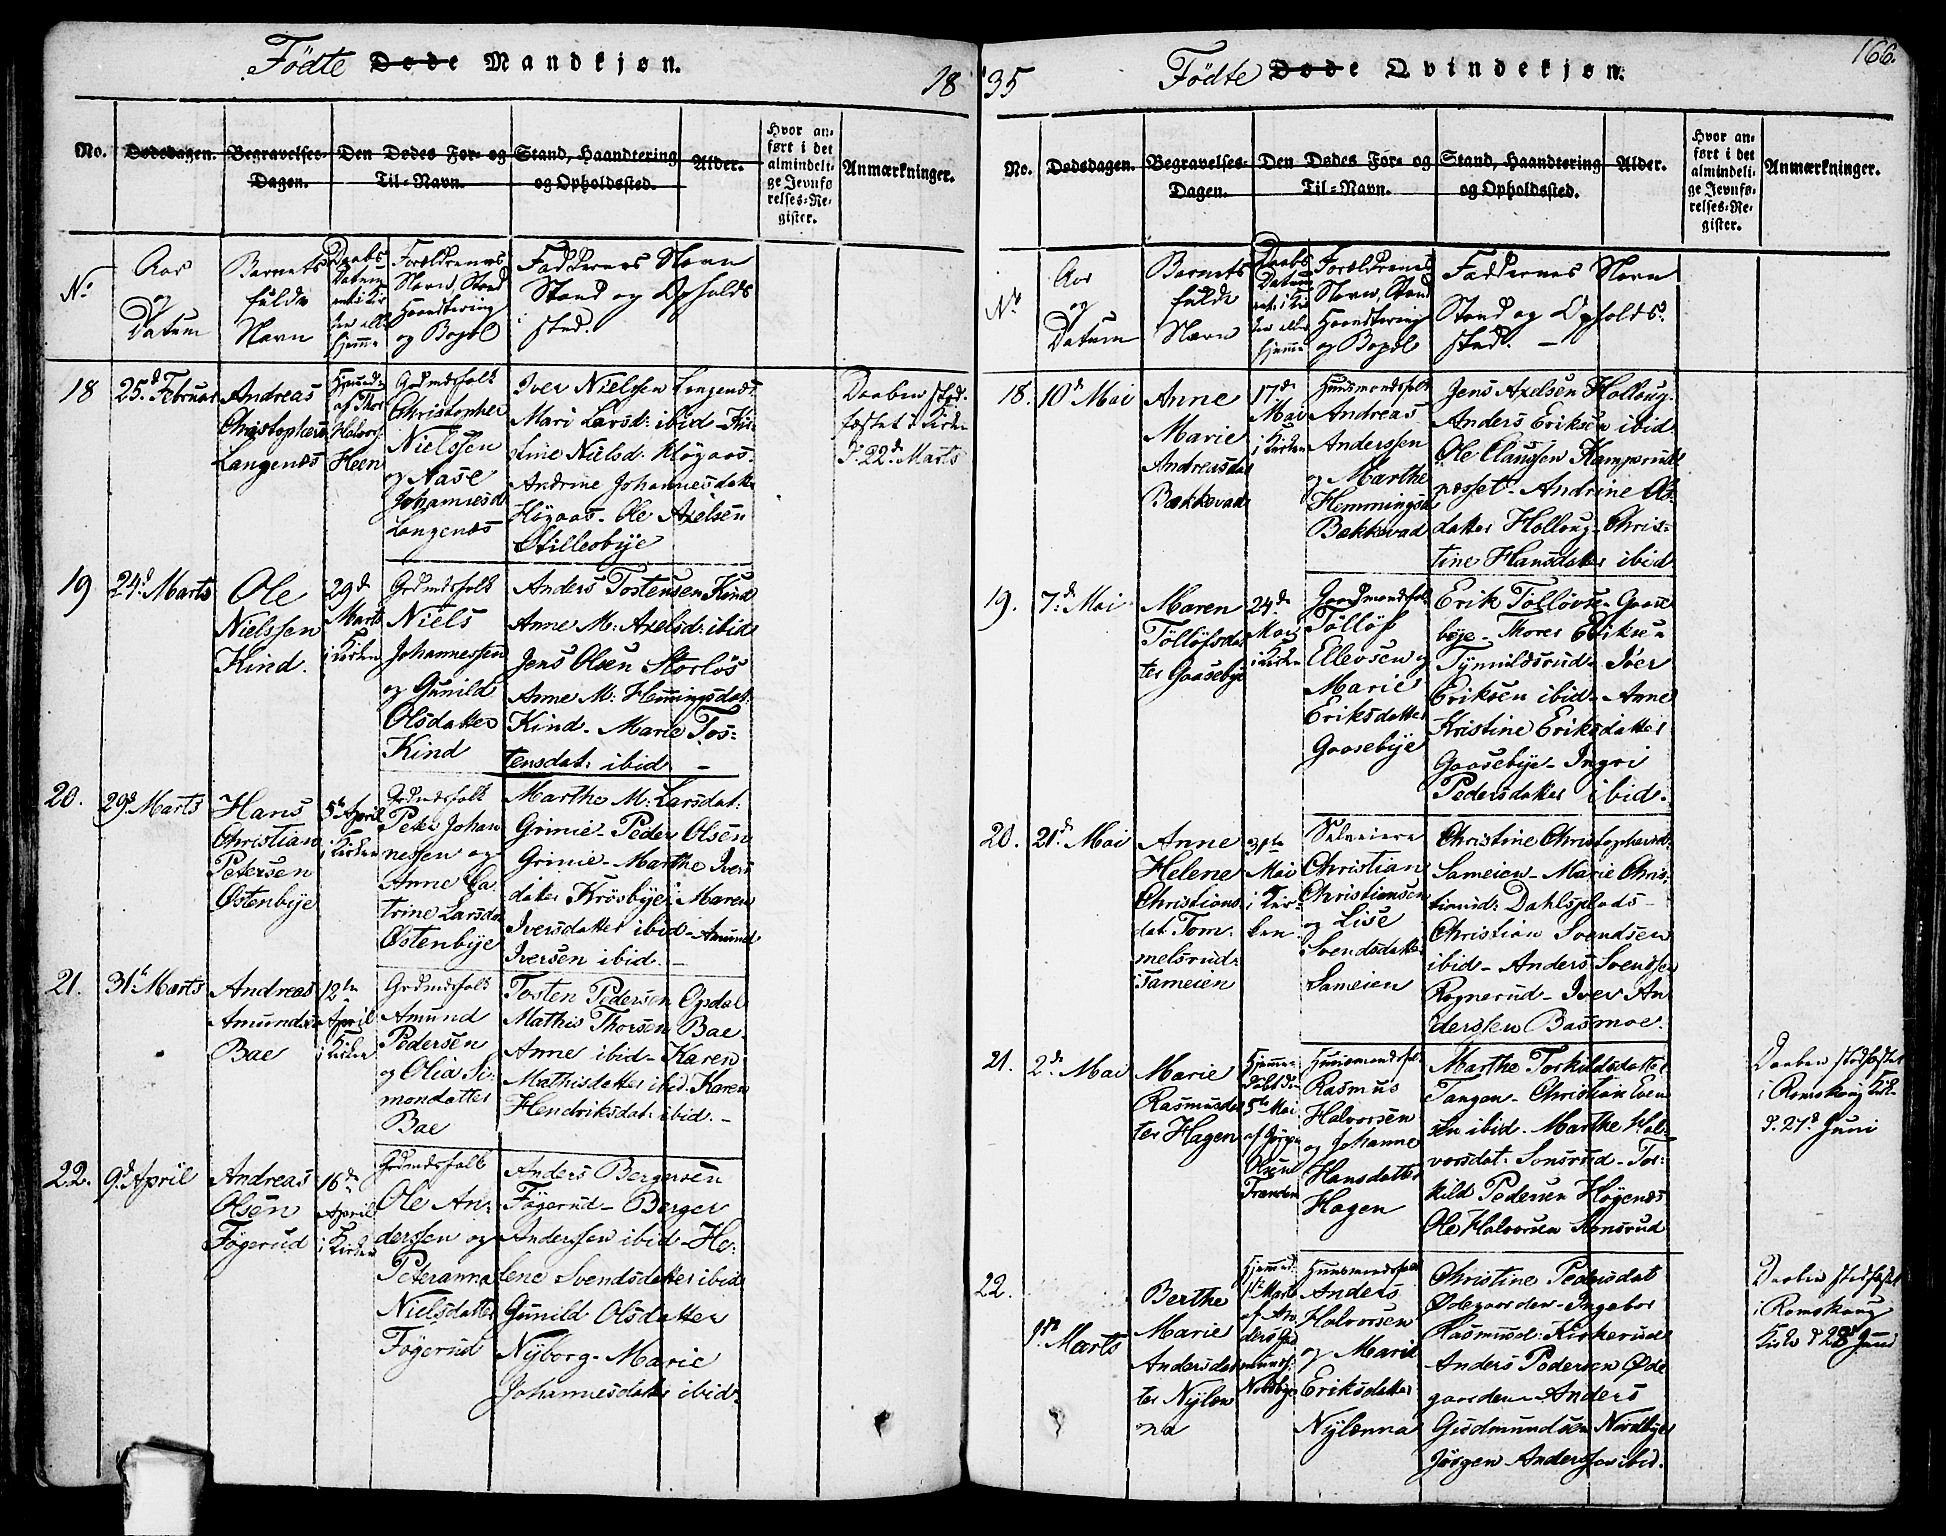 Födte Døde Mandkjøn.
18
No.
Dødsdagen.
Begravelses-
Dagen.
Den Dødes For- og
Til-Navn.
Stand, Haandtering
og Opholdssted.
Alder.
Hvor an-
ført i det
almindeli-
ge Jevnfø-
relses-Re-
gister.
Anmærkninger.
No
Aar
og
Datum
Barnets
fulde
Navn
Daabs
Datum
Forældrenes
Navn, Stand
Haandtering
og Bopæl
Faddernes Navn
Stand og Opholds
sted.
18
25d Februar
Andreas
Christophers
Langenæs
Hjemmed.
af Thor
Halvors:
Heen
Grdmdsfolk
Christopher
Nielssen
og Aase
Johannesd
Langenæs
Iver Nielssen Langenæs
Mari Larsd: ibid - Kir-
stine Nielsd: Högaas.
Andrine Johannesdatter
Högaas - Ole Axelsen
Ötillerbÿe
Daaben stad-
fæstet i Kirken
d. 22d Marts
19
24d Marts
Ole
Nielssen
Kind.
29d
Marts
i Kirken
Grdmdsfolk
Niels
Johannessen
og Gunild
Olsdatter
Kind
Anders Tostensen Kind
Anne M: Axelsd: ibid
Jens Olsen Storlös
Anne M: Hemingsdat:
Kind - Marie Tos-
tensdat: ibid -
20.
29d Marts
Hans
Christian
Petersen
Østenbÿe
5te April
i Kirken
Grdmdsfolk
Peter Johan
nessen og
Anne Ca-
trine Larsdat
Østenbÿe
Marthe M: Larsdat:
Grimie - Peder Olsen
Grimie - Marthe Ivers
datter Krösbÿe - Maren
Iversdatter ibid - Amund
Iversen ibid. -
21.
31te Marts
Andreas
Amundsen
Bae
12te
April
i Kirken
Grdmdsfolk
Amund
Pedersen
og Olia Si-
monsdatter
Bae
Tosten Pedersen Opdal
Mathis Thorsen Bae -
Anne ibid - Karen
Mathisdatter ibid - Karen
Hendriksdat: ibid. -
22.
9d April
Andreas
Olsen
Føgerud
16d
April
i Kirken
Grdmdsfolk
Ole An-
derssen og
Peteranna
Nielsdatter
Føgerud
Anders Bergersen
Føgerud - Berger
Anderssen ibid - He-
lene Svendsdatter ibid
Gunild Olsdatter
Nÿborg - Marie
Johannesdatter ibid.
35
Födte Døde Qvindekjøn.
166.
No.
Dødsdagen.
Begravelses-
Dagen.
Den Dødes For- og
Til-Navn.
Stand, Haandtering
og Opholdssted.
Alder.
Hvor an-
ført i det
almindeli-
ge Jevnfø-
relses-Re-
gister.
Anmærkninger.
No
Aar
og
Datum
Barnets
fulde
Navn
Daabs
Datum
Forældrenes
Navn, Stand
Haandtering
og Bopæl
Faddernes Navn
Stand og Opholds-
sted. -
18.
10d Mai
Anne
Marie
Andreasdat
Bækkevad
17de
Mai
i Kirken
Huusmandsfolk
Andreas
Anderssen
og Marthe
Hemmingsd
Bækkevad
Jens Axelsen Hollaug
Anders Eriksen ibid.
Ole Claussen Kamperud
pladset - Andrine Ols-
datter Hollaug - Chris-
tine Hansdatter ibid
19.
7de Mai
Maren
Tøllöfsdat
ter Gaasebÿe
24de
Mai
i Kirken
Gaardmandsfolk
Töllöf
Ellevsen og
Marie
Eriksdatter
Gaasebÿe
Erik Töllövs. Gaase
bÿe - Thorer Eriksen
Tÿmildsrud - Iver
Eriksen ibid - Anne
Kristine Eriksdatter
Gaasebÿe - Ingri
Pedersdatter ibid.
20.
21d Mai
Anne
Helene
Christians
dat Tom-
melsrud:
Sameien
31te
Mai
i Kir-
ken
Selveiere
Christian
Christiansen
og Lise
Svendsdatter
Sameien
Christine Christophersd:
Sameien - Marie Chris-
tiansd: Dahlsplads -
Christian Svendsen
ibid - Anders Svendsen
Rognerud - Iver An
derssen Basmoe.
21.
2de Mai
Marie
Rasmusdat
ter Hagen
Hjemme-
döbt d.
5te Mai
af Jörgen
Olsen
Trandem
Huusmandsfolk
Rasmus
Halvorsen
og Johanne
Hansdatter
Hagen
Marthe Torkildsdatter
Tangen - Christian Even
sen ibid. Marthe Hal-
vorsdat: Sonsrud - Tor-
kild Pedersen Høÿenæs
Ole Halvorsen Sonsrud
Daaben stadfæstet
i Romskoug Kirke
d. 21d Juni
22.
1ste Marts
Berthe
Marie
Andersdat
ter Nÿlæn
na
Hjemmed.
1ste Marts
af An-
ders Gud
munds:
Nordbÿe
Huusmandsfolk
Anders
Halvorsen
og Marie
Eriksdatter
Nÿlænna
Christine Pedersdat
Ødegaarden - Ingebor
Rasmusd: Kirkerud
Anders Pedersen Øde
gaarden - Anders
Gudmundsen Nordbÿe
Jörgen Anderssen ibid.
Daaben stadfæstet
i Romskoug
Kirke d 28d Juni